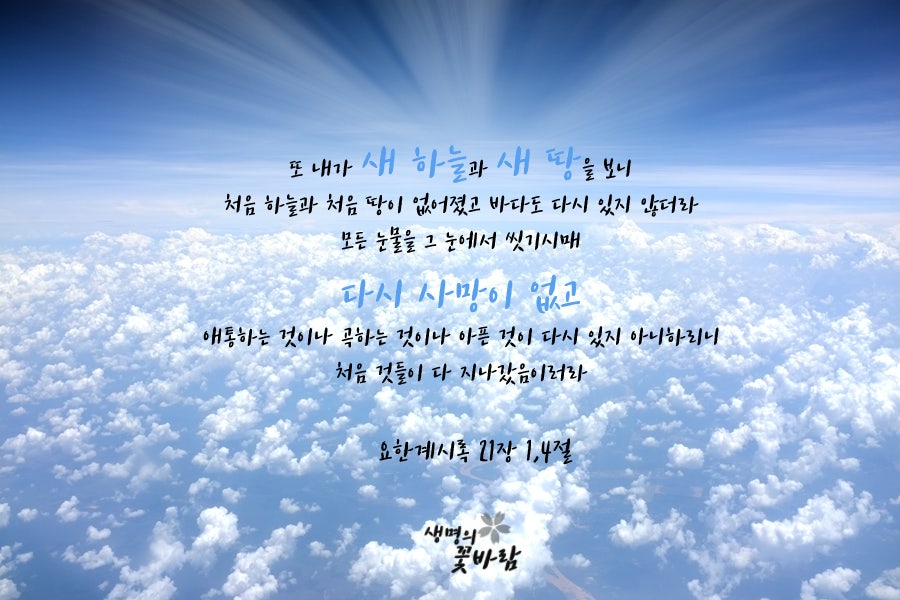 또 내가 새 하늘과 새 땅을 보니
처음 하늘과 처음 땅이 없어졌고 바다도 다시 있지 않더라
모든 눈물을 그 눈에서 씻기시매
다시 사망이 없고
애통하는 것이나 곡하는 것이나 아픈 것이 다시 있지 아니하리니
처음 것들이 다 지나갔음이러라
요한계시록 21장 1,4절
생명의
꽃바람